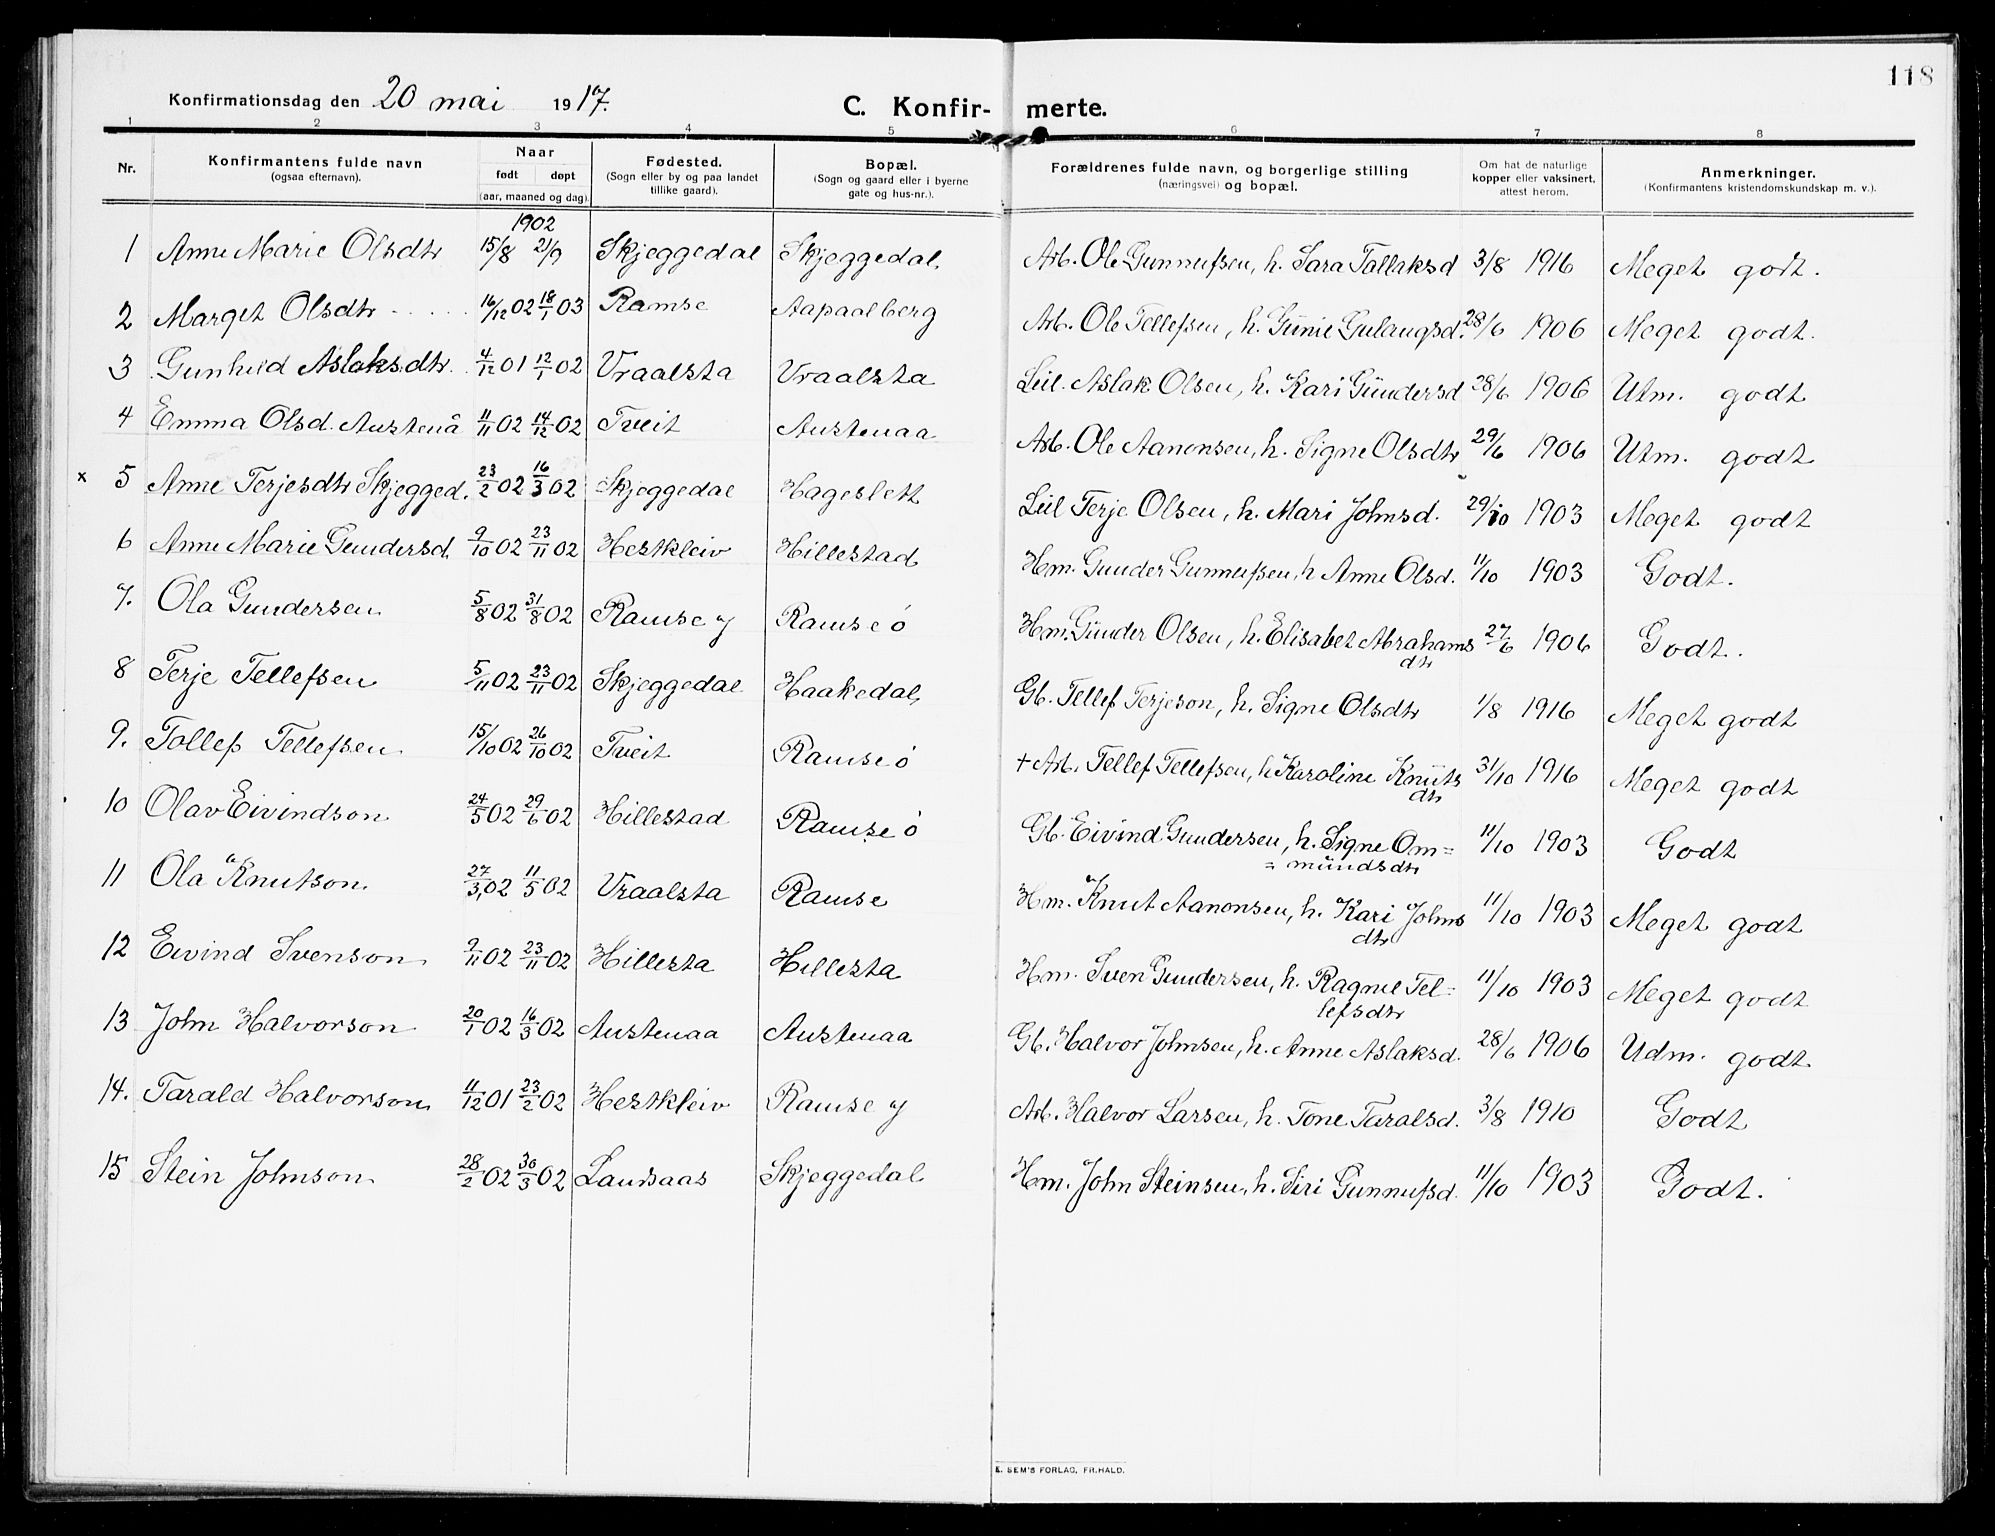 118
Konfirmationsdag den 20 mai 1917. C. Konfir- merte.
1 2 3 4 5 6 7 8
Nr. Konfirmantens fulde navn (ogsaa efternavn). Naar født døpt (aar, maaned og dag). Fødested. (Sogn eller by og paa landet tillike gaard). Bopæl. (Sogn og gaard eller i byerne gate og hus-nr.). Forældrenes fulde navn, og borgerlige stilling (næringsvei) og bopæl. Om hat de naturlige kopper eller vaksinert, attest herom. Anmerkninger. (Konfirmantens kristendomskundskap m. v.).
1902
1 Anne Marie Olsdtr 15/8 21/9 Skjeggedal Skjeggedal Arb. Ole Gunnufsen, h. Sara Tallaksd 3/8 1916 Meget godt.
2 Marget Olsdtr 16/12 02 18/1 03 Ramse Aapaalberg Arb. Ole Tellefsen, h. Gunie Gulaugsd. 28/6 1906 Meget godt.
3 Gunhild Aslaksdtr. 4/12 01 12/1 02 Vraalsta Vraalsta Leil. Aslak Olsen, h. Kari Gundersd 28/6 1906 Utm. godt
4 Emma Olsd. Austenå 11/11 02 14/12 02 Tveit Austenaa Arb. Ole Aanonsen, h. Signe Olsdtr 29/6 1906 Utm. godt
x 5 Anne Terjesdtr Skjegged. 23/2 02 16/3 02 Skjeggedal Hageslett Leil Terje Olsen, h. Mari Johnsd. 29/10 1903 Meget godt
6 Anne Marie Gundersd. 9/10 02 23/11 02 Hestkleiv Hillestad Hm. Gunder Gunnufsen, h Anne Olsd. 11/10 1903 Godt.
7. Ola Gundersen 5/8 02 31/8 02 Ramse y Ramse ö Hm. Gunder Olsen, h. Elisabet Abrahams 27/6 1906 Godt.
dtr
8 Terje Tellefsen 5/11 02 23/11 02 Skjeggedal Haakedal Gb. Tellef Terjeson, h. Signe Olsdtr 1/8 1916 Meget godt
9. Tollef Tellefsen 15/10 02 26/10 02 Tveit Ramse ö + Arb. Tellef Tellefsen, h Karoline Knuts 31/10 1916 Meget godt
dtr
10 Olav Eivindson 24/5 02 29/6 02 Hillestad Ramse ö Gb. Eivind Gundersen, h. Signe Om= 11/10 1903 Godt
= mundsdtr
11 Ola Knutson. 27/3 02 11/5 02 Vraalsta Ramse Hm. Knut Aanonsen, h. Kari Johns 11/10 1903 Meget godt
dtr
12 Eivind Svenson 9/11 02 23/11 02 Hillesta Hillesta Hm. Sven Gundersen, h. Ragnil Tel= 11/10 1903 Meget godt
lefsdtr
13 John Halvorson 20/1 02 16/3 02 Austenaa Austenaa Gb. Halvor Johnsen, h. Anne Aslaksd. 28/6 1906 Udm. godt
14. Tarald Halvorson 11/12 01 23/2 02 Hestkleiv Ramse y Arb. Halvor Larsen, h. Tone Taralsd. 3/8 1910 Godt
15 Stein Johnson 28/2 02 30/3 02 Landsaas Skjeggedal Hm. John Steinsen, h. Siri Gunnufsd. 11/10 1903 Godt.
E. SEM'S FORLAG, FR.HALD.